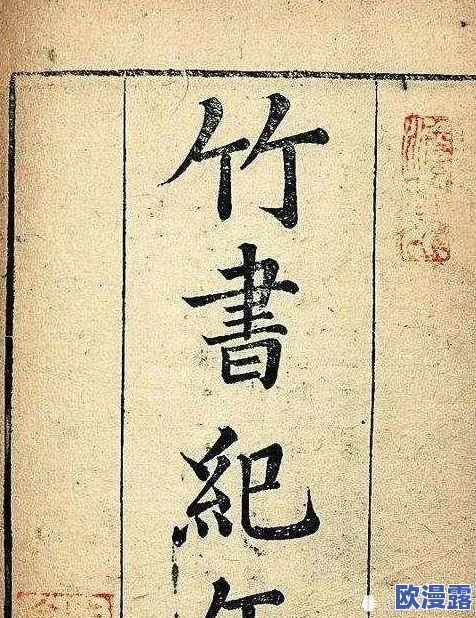 竹書紀年
欧漫露